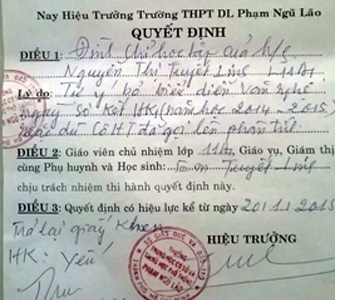 Nay Hiệu Trưởng Trường THPT DL Phạm Ngũ Lão
QUYẾT ĐỊNH
ĐIỀU 1: Đình chỉ học tập của h/s
Nguyễn Thị Tuyết Linh L11A1
Lý do: Tự ý bỏ biểu diễn văn nghệ
ngày sơ kết HK1 (năm học 2014 - 2015)
mặc dù Cô H đã gọi lên phân tích
ĐIỀU 2: Giáo viên chủ nhiệm lớp 11A1, Giáo vụ, Giám thị
cùng Phụ huynh và Học sinh: Em Tuyết Linh
chịu trách nhiệm thi hành quyết định này.
ĐIỀU 3: Quyết định có hiệu lực kể từ ngày 20.1.2015
Trả lại giấy khen
HIỆU TRƯỞNG
HK: Yếu
PHẠM NGŨ LÃO